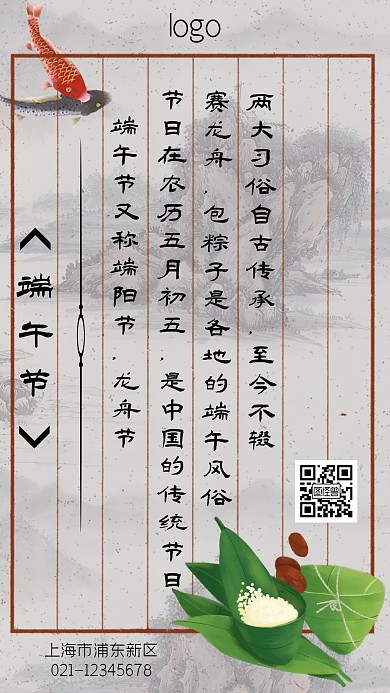 logo
《端午节》
端午节又称端阳节，龙舟节
节日在农历五月初五，是中国的传统节日
赛龙舟，包粽子是各地的端午风俗
两大习俗自古传承，至今不辍
图怪兽
上海市浦东新区
021-12345678